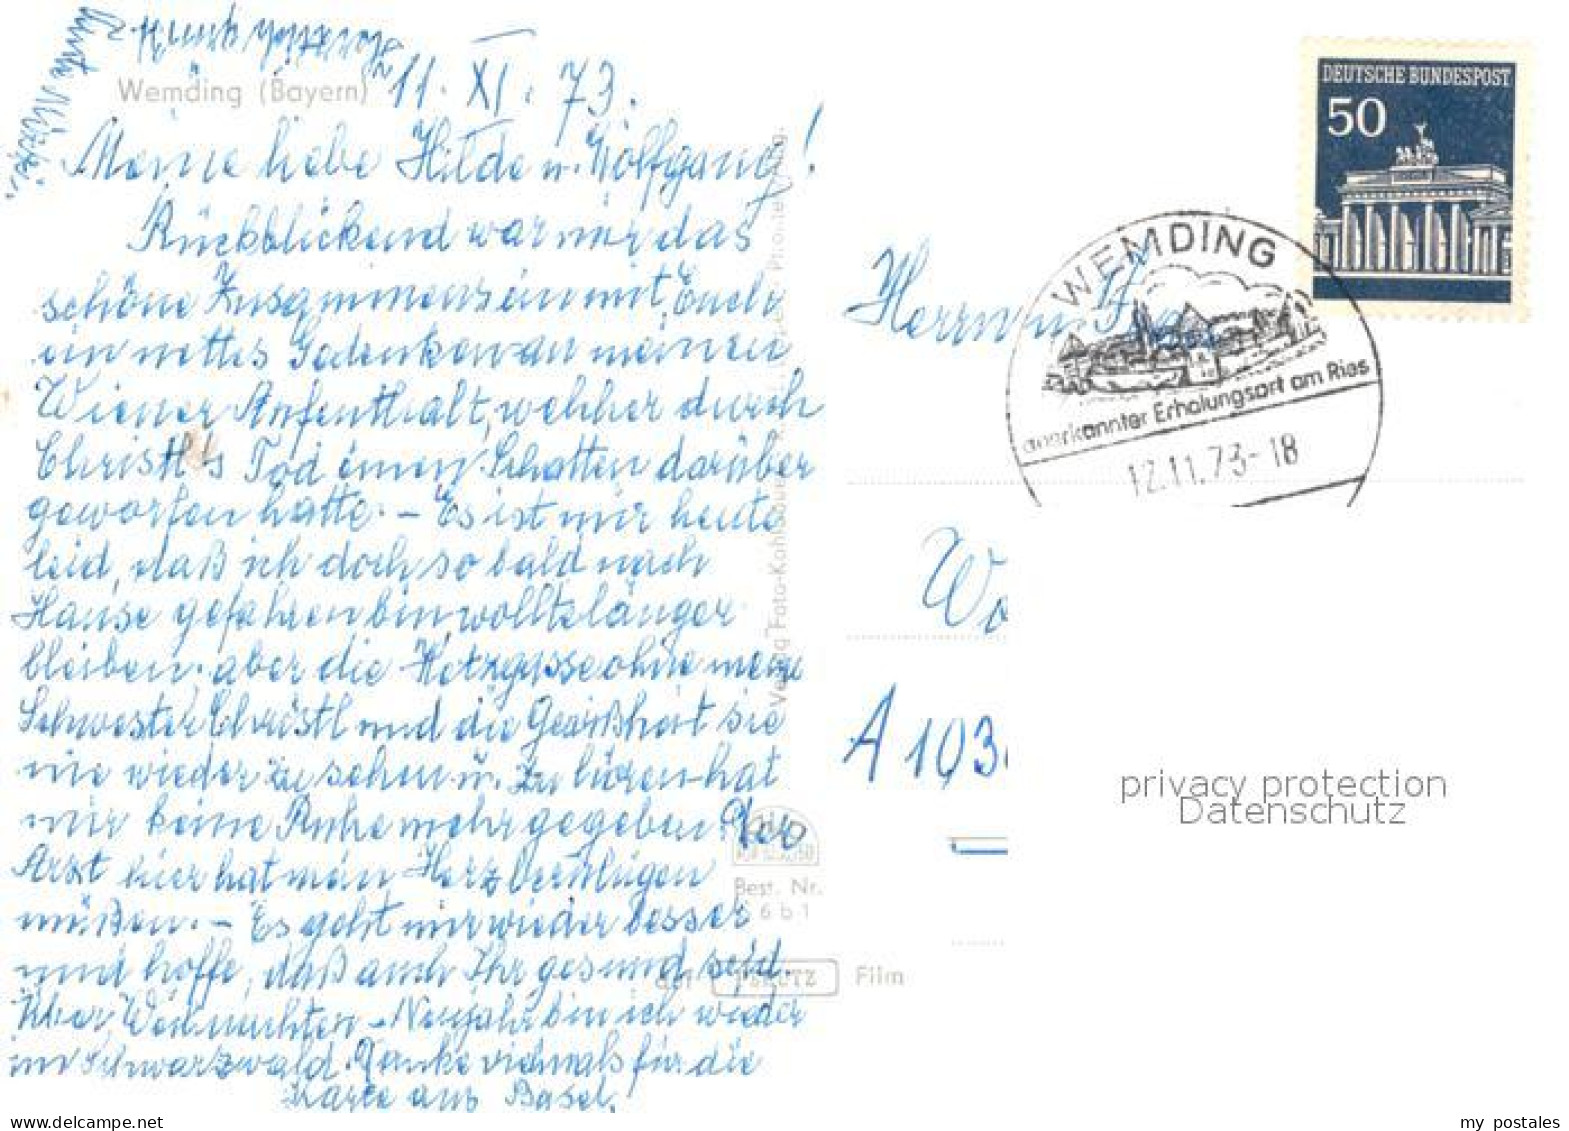 Wemding (Bayern)
11. XI. 73.
Meine liebe Hilde u. Wolfgang!
Rückblickend war mir das
schöne Zusammensein mit Euch
ein nettes Gedenken an meinen
Wiener Aufenthalt, welcher durch
Christl's Tod einen Schatten darüber
geworfen hatte. – Es ist mir heute
leid, daß ich doch so bald nach
Hause gefahren bin wollte länger
bleiben. aber die Hetzgasse ohne meine
Schwester Christl und die Gewißheit sie
nie wieder zu sehen u. zu hören hat
mir keine Ruhe mehr gegeben. Der
Arzt hier hat mein Herz beruhigen
müßen. – Es geht mir wieder besser
und hoffe, daß auch Ihr gesund seid.
Über Weihnachten – Neujahr bin ich wieder
im Schwarzwald. Danke vielmals für die
Karte aus Basel.
Herzlich grüßt
Verlag Foto-Kohlbauer
Best. Nr.
6 b 1
Film
DEUTSCHE BUNDESPOST
50
WEMDING
anerkannter Erholungsort am Ries
12.11.73-18
Herrn u.
Wo
A 103
privacy protection
Datenschutz
www.delcampe.net
my_postales